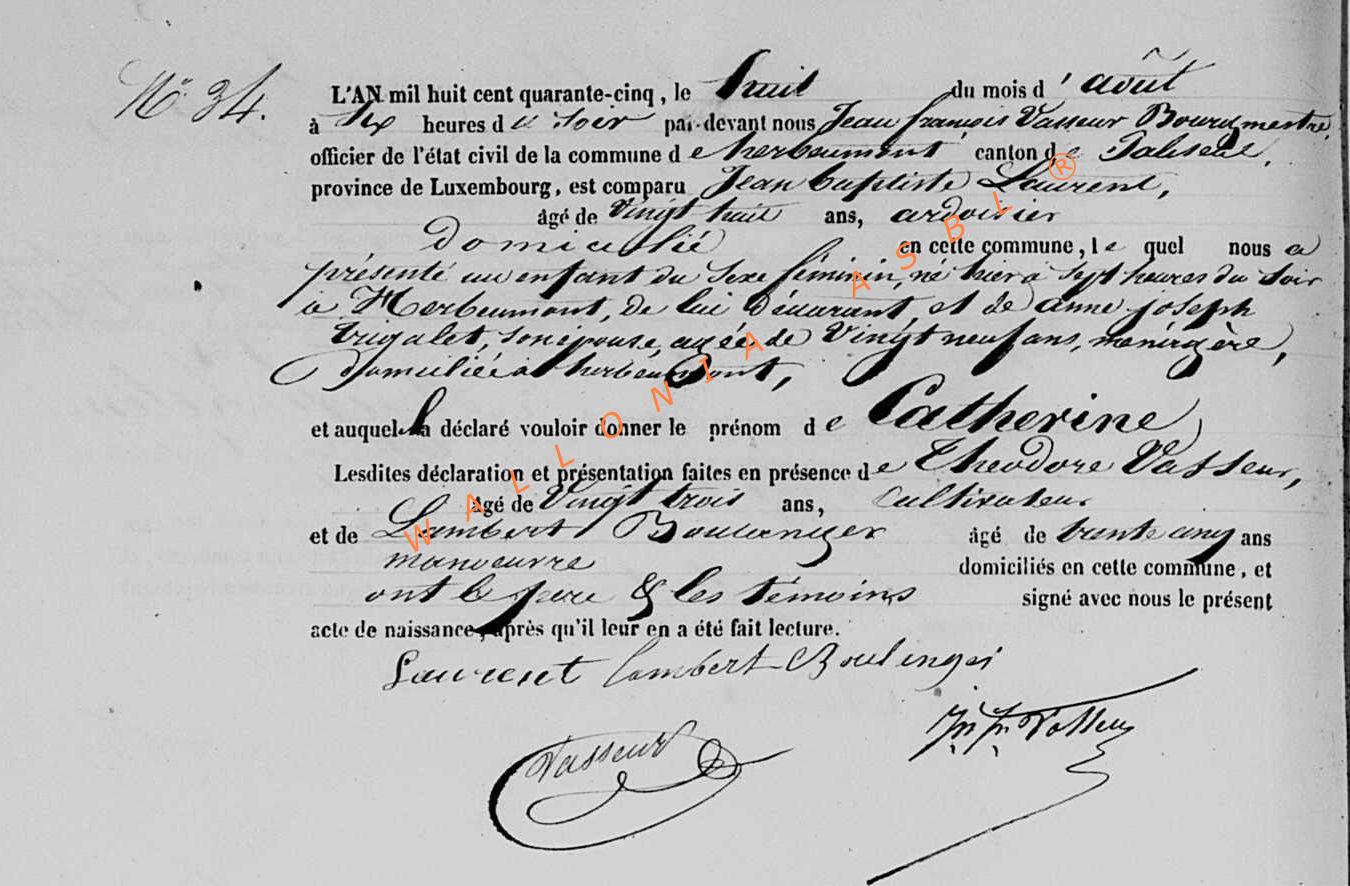 N° 34.
L'AN mil huit cent quarante-cinq, le huit du mois d'août
à six heures du soir par-devant nous Jean françois Vasseur Bourgmestre,
officier de l'état civil de la commune de herbeumont canton de Paliseul,
province de Luxembourg, est comparu Jean baptiste Laurent,
âgé de vingt huit ans, ardoisier
domicilié en cette commune, le quel nous a
présenté un enfant du sexe féminin, né hier à sept heures du soir
à Herbeumont, de lui déclarant, et de anne joseph
trigalet, son épouse, agée de Vingt neuf ans, ménagère,
Domiciliée à herbeumont,
et auquel il a déclaré vouloir donner le prénom de Catherine
Lesdites déclaration et présentation faites en présence de Théodore Vasseur,
âgé de Vingt trois ans, Cultivateur
et de Lambert Boulanger âgé de trente cinq ans
manoeuvre domiciliés en cette commune, et
ont le père & les témoins signé avec nous le présent
acte de naissance, après qu'il leur en a été fait lecture.
Laurent lambert Boulenger
Vasseur Jn fn Vasseur
WALLONIA ASBL ®